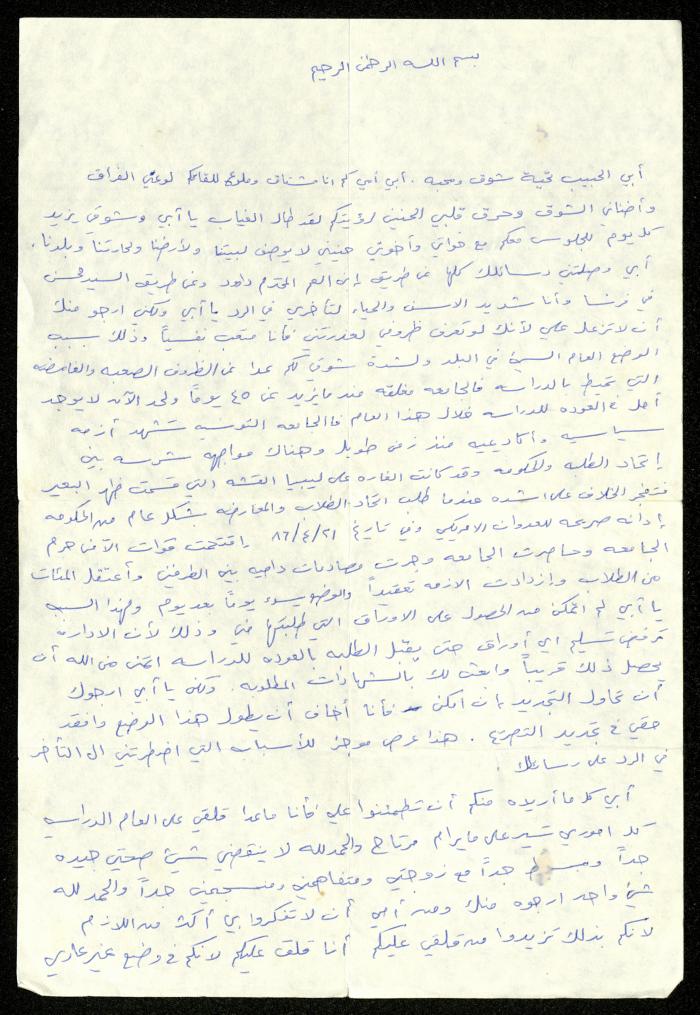 بسم الله الرحمن الرحيم
أبي الحبيب تحية شوق ومحبه . أبي أمي كم انا مشتاق وملوع للقائكم لوعني الفراق
وأضناني الشوق وحرق قلبي الحنين لرؤيتكم لقد طال الغياب يا أبي وشوقي يزيد
كل يوم للجلوس معكم مع خواتي وأخوتي حنيني لا يوصف لبيتنا ولأرضنا ولحارتنا وبلدنا .
أبي وصلتني رسائلك كلها عن طريق ابن العم المحترم داود وعن طريق السيد محسن
في فرنسا وأنا شديد الاسف والحياء لتأخري في الرد يا أبي ولكني ارجو منك
أن لا تزعل علي لأنك لو تعرف ظروفي لعذرتني فأنا متعب نفسياً وذلك سببه
الوضع العام السيئ في البلد ولشدة شوقي لكم عدا عن الظروف الصعبه والغامضه
التي تحيط بالدراسه فالجامعه مغلقه منذ ما يزيد عن ٤٥ يوماً ولحد الآن لا يوجد
أمل في العوده للدراسه خلال هذا العام فالجامعه التونسيه تشهد أزمه
سياسيه وأكاديميه منذ زمن طويل وهناك مواجهه شرسه بين
إتحاد الطلبه والحكومه وقد كانت الغاره على ليبيا القشه التي قسمت ظهر البعير
فتفجر الخلاف على اشده عندما طلب اتحاد الطلاب والمعارضه بشكل عام من الحكومه
إدانه صريحه للعدوان الامريكي وفي تاريخ ٨٦/٤/٢١ اقتحمت قوات الأمن حرم
الجامعه وحاصرت الجامعه وجرت مصادمات داميه بين الطرفين وأعتقل المئات
من الطلاب وإزدادت الازمه تعقيداً والوضع يسوء يوماً بعد يوم ولهذا السبب
يا أبي لم اتمكن من الحصول على الاوراق التي طلبتها مني وذلك لأن الاداره
ترفض تسليم اي أوراق حتى يقبل الطلبه بالعوده للدراسه اتمنى من الله أن
يحصل ذلك قريباً وابعث لك بالشهادات المطلوبه . ولكن يا أبي ارجوك
أن تحاول التجديد إن امكن فأنا أخاف أن يطول هذا الوضع وافقد
حقي في تجديد التصريح . هذا عرض موجز للأسباب التي اضطرتني الى التأخر
في الرد على رسائلك
أبي كل ما أريده منكم أن تطمئنوا علي فأنا ما عدا قلقي على العام الدراسي
كل اموري تسير على ما يرام مرتاح والحمد لله لا ينقصني شيئ صحتي جيده
جداً ومبسوط جداً مع زوجتي ومتفاهمين ومنسجمين جداً والحمد لله
شيئ واحد ارجوه منك ومن أمي أن لا تفكروا بي أكثر من اللازم
لانكم بذلك تزيدوا من قلقي عليكم أنا قلق عليكم لانكم في وضع غير عادي